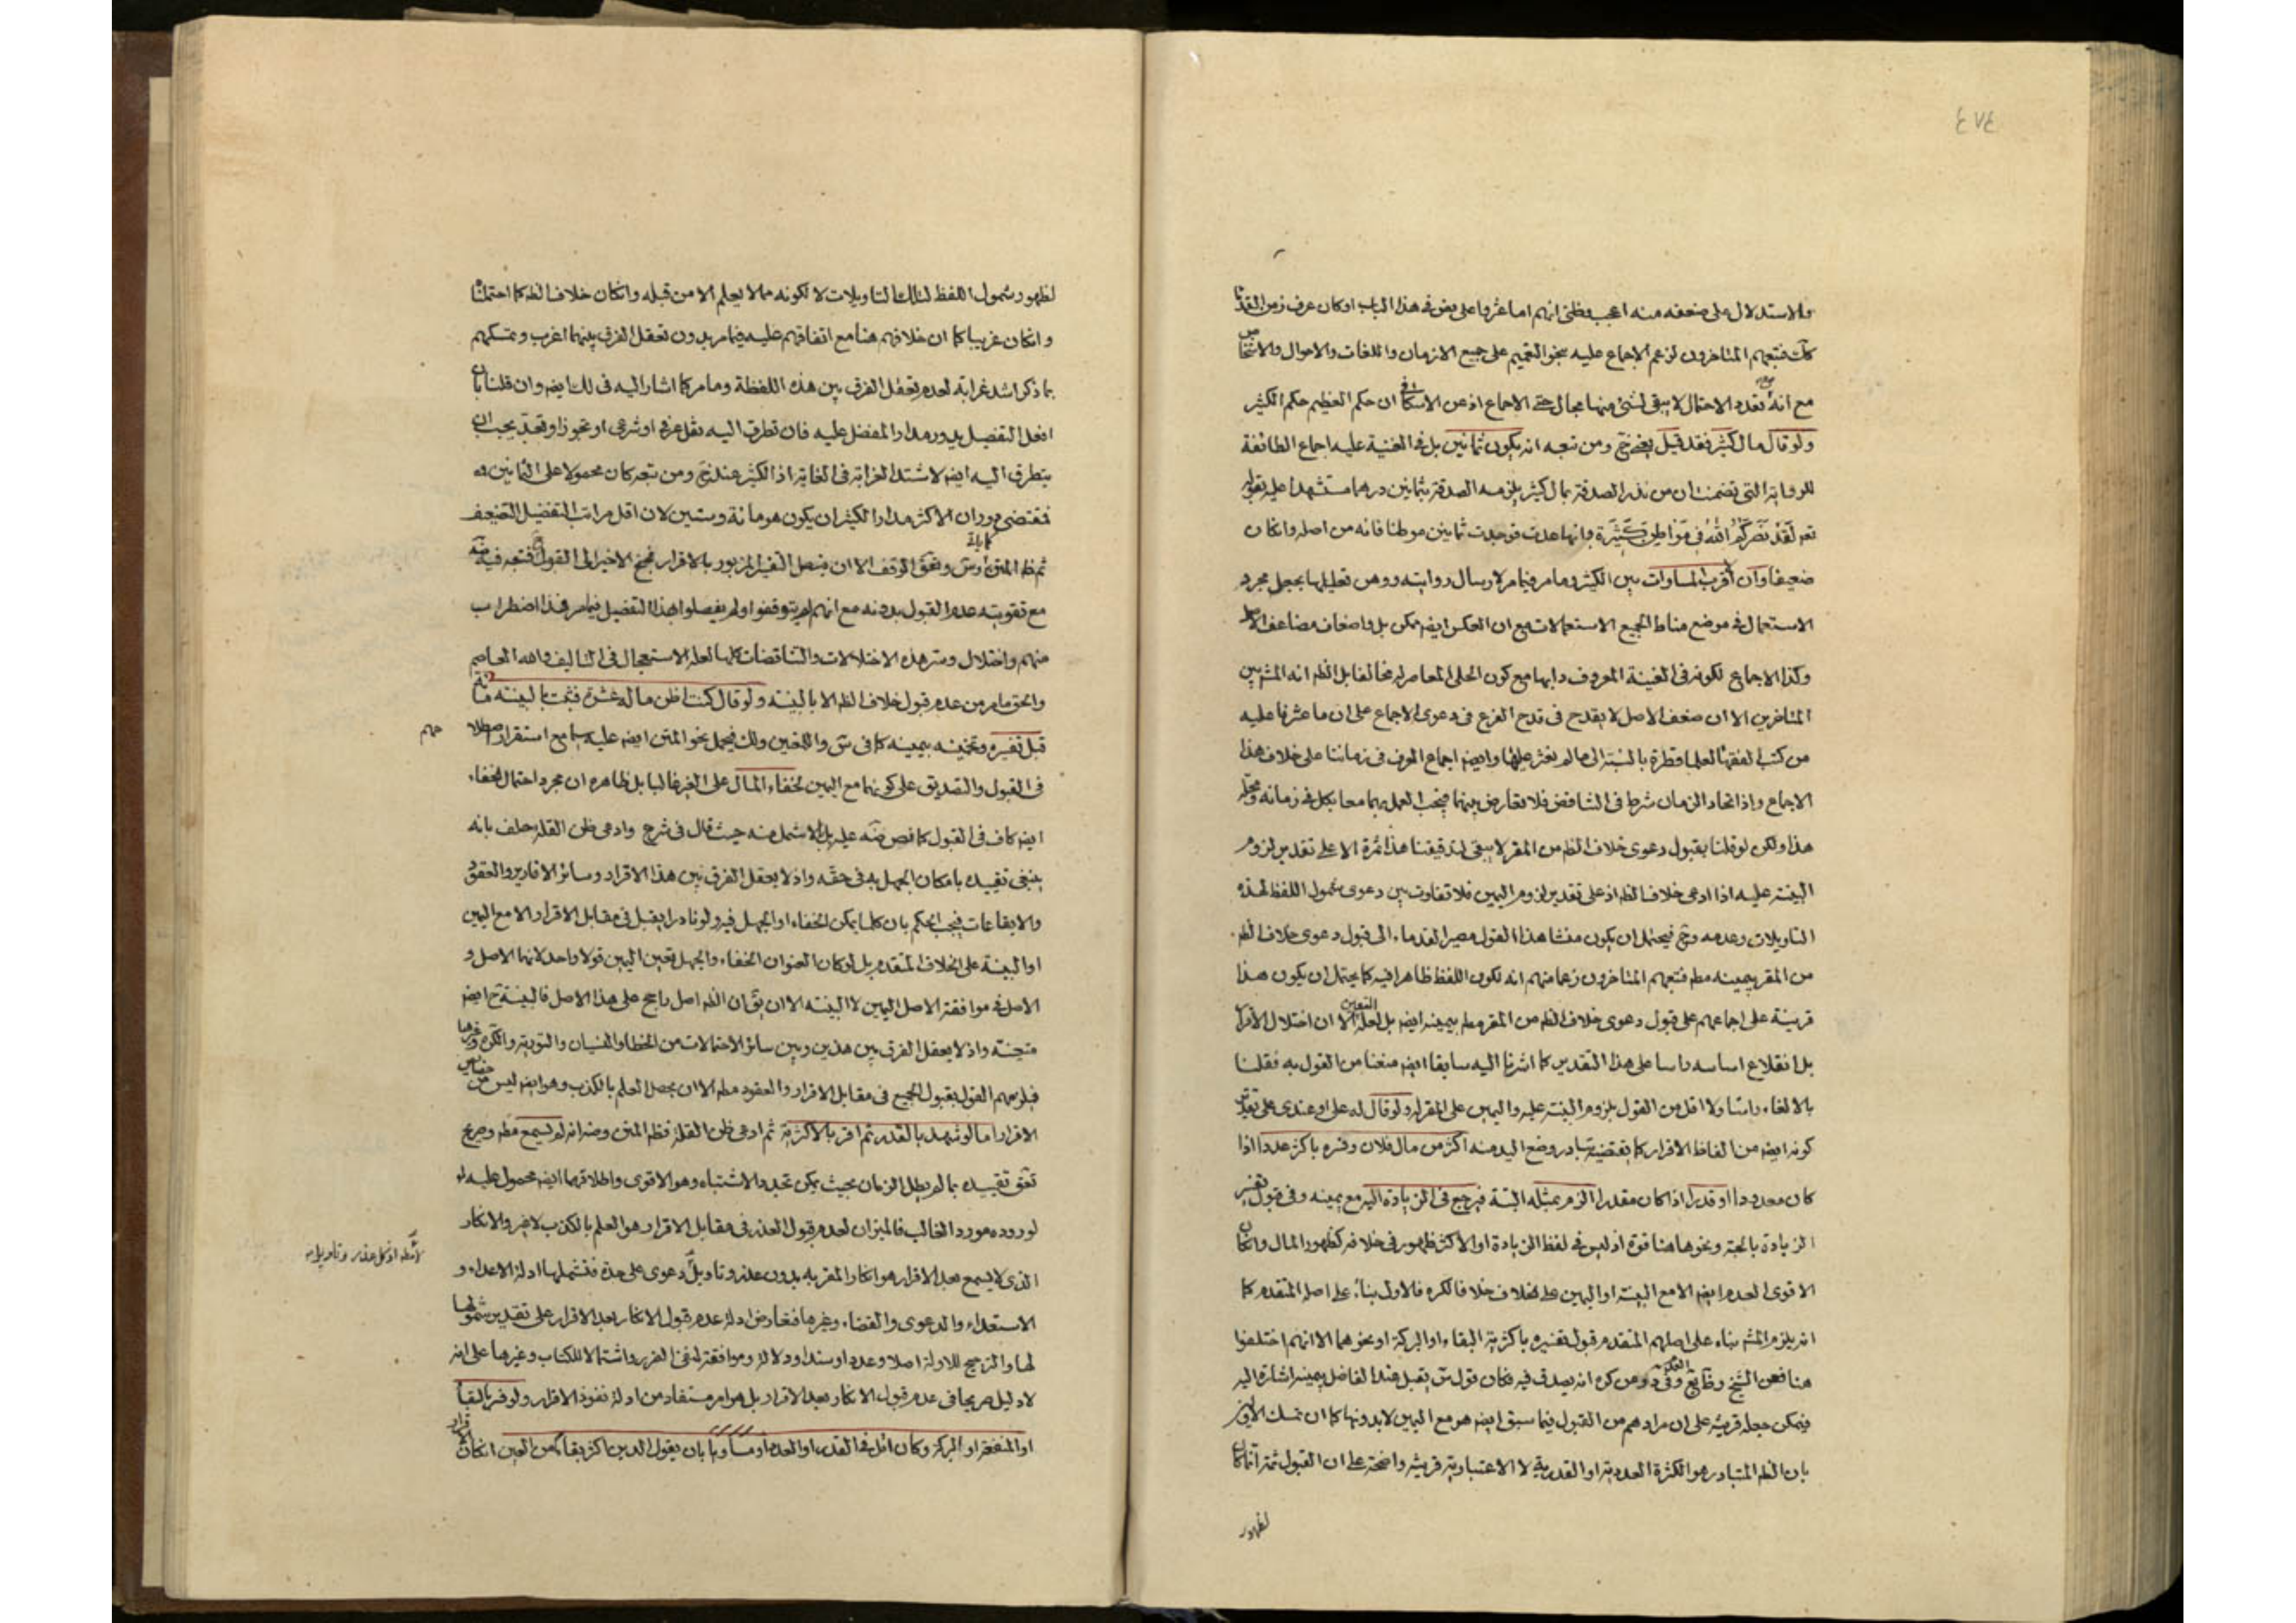 ٤٧٤
والاستدلال على ضعفه منه اعجب وظني انهم اما عثروا على نص في هذا الباب او كان عرف زمن القدماء
كك فتبعهم المتاخرون لزعم الاجماع عليه بنحو التعميم على جميع الازمان واللغات والاحوال والاشخاص
مع انه بعد الاحتمال لا يبقى لشئ منها مجال حتى الاجماع اذ عن الاسكافي ان حكم العظيم حكم الكثير
ولو قال مال كثير فقد قيل يعني خ ومن تبعه انه يكون ثمانين بل في الغنية عليه اجماع الطائفة
للرواية التي تضمنت ان من نذر الصدقة بمال كثير يلزمه الصدقة بثمانين درهما مستشهدا عليه بقوله
تعم لَقَدْ نَصَرَكُمُ اللهُ فِي مَوَاطِنَ كَثِيرَة وانها عدت فوجدت ثمانين موطنا فانه من اصله وانكان
ضعيفا وان اقرب المساوات بين الكثير وما مر فيما مر لارسال روايته ووهن تعليلها بجعل مجرد
الاستعمال في موضع مناط لجميع الاستعمالات مع ان العكس ايضا ممكن بل واضعاف مضاعف الاصل
وكذا الاجماع لكونه في الغنية المعروف دابها مع كون الحلي المعاصر له مخالفا بل الظم انه المشهور بين
المتاخرين الا ان ضعف الاصل لا يقدح في قدح الفرع في دعوى الاجماع على ان ما عثرنا عليه
من كتب الفقهاء لعلها قطرة بالنسبة الى ما لم نعثر عليها وايضا اجماع العرف في زماننا على خلاف هذا
الاجماع واذ اتحاد الزمان شرط في التناقض فلا تعارض بينهما فيجب العمل بهما معا بكل في زمانه ومحله
هذا ولكن لو قلنا بقبول دعوى خلاف الظم من المقر لا يبقى لتدقيقنا هذا ثمرة الا على تقدير لزوم
البينة عليه اذا ادعى خلاف الظم اذ على تقدير لزوم اليمين فلا تفاوت بين دعوى شمول اللفظ لهذه
التاويلات وعدمه وح فيحتمل ان يكون منشا هذا القول مصير القدماء الى قبول دعوى خلاف الظم
من المقر بيمينه مطم فتبعهم المتاخرون زعما منهم انه لكون اللفظ ظاهرا فيه كما يحتمل ان يكون هذا
قرينة على اجماعهم على قبول دعوى خلاف الظم من المقر مطم بيمينه ايضا بل لعله المتعين الا ان اختلال الاقرار
بل انقلاع اساسه راسا على هذا التقدير كما اشرنا اليه سابقا ايضا منعنا من القول به فقلنا
بالالغاء راسا ولا اقل من القول بلزوم البينة عليه واليمين على المقر له ولو قال له على او عندي على تقدير
كونه ايضا من الفاظ الاقرار كما يقتضيه تبادر وضع اليد منه اكثر من مال فلان وفسره باكثر عددا اذا
كان معدودا او قدرا اذا كان مقدرا الزم بمثله البتة فيرجع في الزيادة اليه مع يمينه وفي قبول تفسير
الزيادة بالحبة ونحوها هنا قوة اذ ليس في لفظ الزيادة او الاكثر ظهور في خلافه كظهور المال وانكان
الاقوى العدم ايضا الا مع البينة او اليمين على الخلاف خلافا لكره فالاول بناء على اصله المتقدم كما
انه يلزم المشهور بناء على اصلهم المتقدم قبول تفسيره باكثرية البقاء او البركة او نحوهما الا انهم اختلفوا
هنا فعن الشيخ وظ يع وفي د ومن كره انه يصدق فيه فكان قول ش يقبل عند الفاضل بيمينه اشارة اليه
فيمكن جعله قرينة على ان مرادهم من القبول فيما سبق ايضا هو مع اليمين لا بدونها كما ان تمسك الاولين
بان الظم المتبادر هو الكثرة العددية او القدرية لا الاعتبارية قرينة واضحة على ان القبول ثمة انما كان
لظهور
لظهور شمول اللفظ لتلك التاويلات لا لكونه مما لا يعلم الا من قبله وانكان خلاف الظم كما احتملناه
وانكان غريبا كما ان خلافهم هنا مع اتفاقهم عليه فيما مر بدون تعقل الفرق بينهما اغرب وتمسكهم
بما ذكر اشد غرابة لعدم تعقل الفرق بين هذه اللفظة وما مر كما اشار اليه في لك ايضا وان قلنا بان
افعل التفضيل يدور مدار المفضل عليه فان تطرق اليه نقل عرفي او شرعي او تجوز او تعبد يجب ان
يتطرق اليه ايضا لاشتد الغرابة في الغاية اذ الكثير عند خ ومن تبعه كان محمولا على الثمانين فه
فمقتضى دوران الاكثر مدار الكثير ان يكون هو مائة وستين لان اقل مراتب التفضيل التضعيف
ثم ظم المتن وس ونحو الوقف الا ان يتصل التفسير المزبور بالاقرار فيجنح الاخير الى القول كابانة فتبعه فيه ضه
مع تقويته عدم القبول بدونه مع انهم لم يتوقفوا ولم يفصلوا هذا التفصيل فيما مر فهذا اضطراب
منهم واختلال وسر هذه الاختلالات والتناقضات كلها لعله الاستعجال في التاليف والله العاصم
والحق ما مر من عدم قبول خلاف الظم الا بالبينة ولو قال كنت اظن ماله عشرة فثبت بالبينة مائة
قبل تفسيره وتخمينه بيمينه كما في ش واللمعتين ولك فيحمل نحو المتن ايضا عليه سيما مع استقرار اصطلاحهم
في القبول والتصديق على كونهما مع اليمين لخفاء المال على الغير غالبا بل ظاهره ان مجرد احتمال الخفاء
ايضا كاف في القبول كما نص ضه عليه بل الاشمل منه حيث قال في شرح وادعى ظن القلة حلف بانه
ينبغي تقييده بامكان الجهل به في حقه واذ لا يعقل الفرق بين هذا الاقرار وسائر الاقارير والعقود
والايقاعات فيجب الحكم بان كلما يمكن الخفاء او الجهل فيه ولو نادرا يقبل في مقابل الاقرار والا مع اليمين
او البينة على الخلاف المتقدم بل لو كان العنوان الخفاء والجهل تعين اليمين قولا واحدا لانهما الاصل و
الاصل في موافقة الاصل اليمين لا البينة الا ان يق ان الظم اصل راجح على هذا الاصل فالبينة ح ايضا
متجهة واذ لا يعقل الفرق بين هذين وبين سائر الاحتمالات من الخطا والنسيان والتورية والكره وغيرها
فيلزمهم القول بقبول الجميع في مقابل الاقرار والعقود مطم الا ان يحصل العلم بالكذب وهو ايضا ليس من خصائص
الاقرار اما لو شهد بالقدر ثم اقر بالاكثرية ثم ادعى ظن القلة فظم المتن وضه انه لم يسمع مطم وصريح
تعق تقييده بما لم يطل الزمان بحيث يمكن تجدد الاشتباه وهو الاقوى واطلاقهما ايضا محمول عليه او
لوروده مورد الغالب فالميزان لعدم قبول العذر في مقابل الاقرار هو العلم بالكذب لا غير والانكار
الذي لا يسمع بعد الاقرار هو انكار المقر به بدون عذر وتاويل دعوى على حدة فتشملها ادلة الاعداء و
لا مطم اذ كل عذر وتاويل
الاستعداء والدعوى والقضاء وغيرها فتعارض ادلة عدم قبول الانكار بعد الاقرار على تقدير شمولها
لها والترجيح للاولة اصلا وعددا وسندا ودلالة وموافقة لنفي الضرر واشتمالا للكتاب وغيرها على انه
لا دليل صريحا في عدم قبول الانكار بعد الاقرار بل هو امر مستفاد من ادلة نفوذ الاقرار ولو فسر بالبقاء
او المنفعة او البركة وكان اقل في القدر او العدد او مساويا بان يقول الدين اكثر بقاء من العين انكان